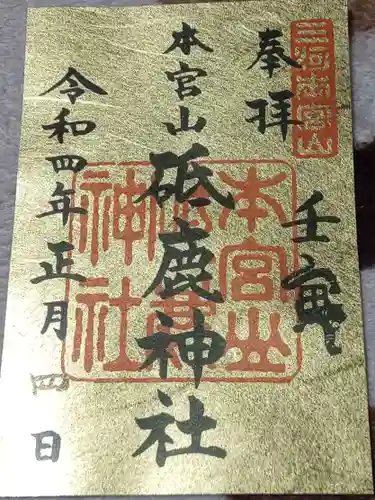 三河本宮山
奉拝
壬寅
本宮山
砥鹿神社
令和四年正月四日
本宮山
砥鹿
神社